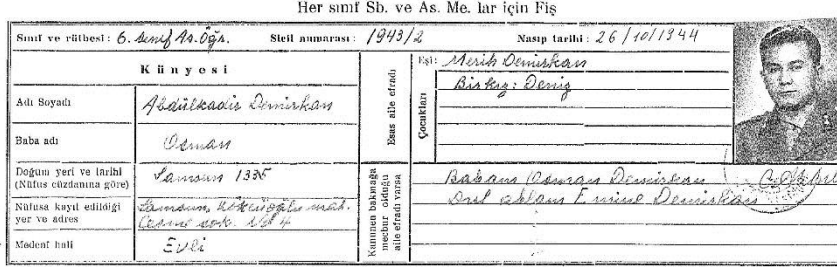 Her sınıf Sb. ve As. Me. lar için Fiş
Sınıf ve rütbesi: 6. sınıf As. Öğr. Sicil numarası: 1943/2 Nasıp tarihi: 26/10/1944
Künyesi
Adı Soyadı Abdülkadir Demirkan
Baba adı Osman
Doğum yeri ve tarihi (Nüfus cüzdanına göre) Samsun 1335
Nüfusa kayıt edildiği yer ve adres Samsun mah. Çeşme sok. No 4
Medenî hali Evli
Esas aile efradı
Eşi: Merih Demirkan
Çocukları Bir kız: Deniz
Kanunen bakmağa mecbur olduğu aile efradı varsa
Babam Osman Demirkan
Dul ablam Emine Demirkan